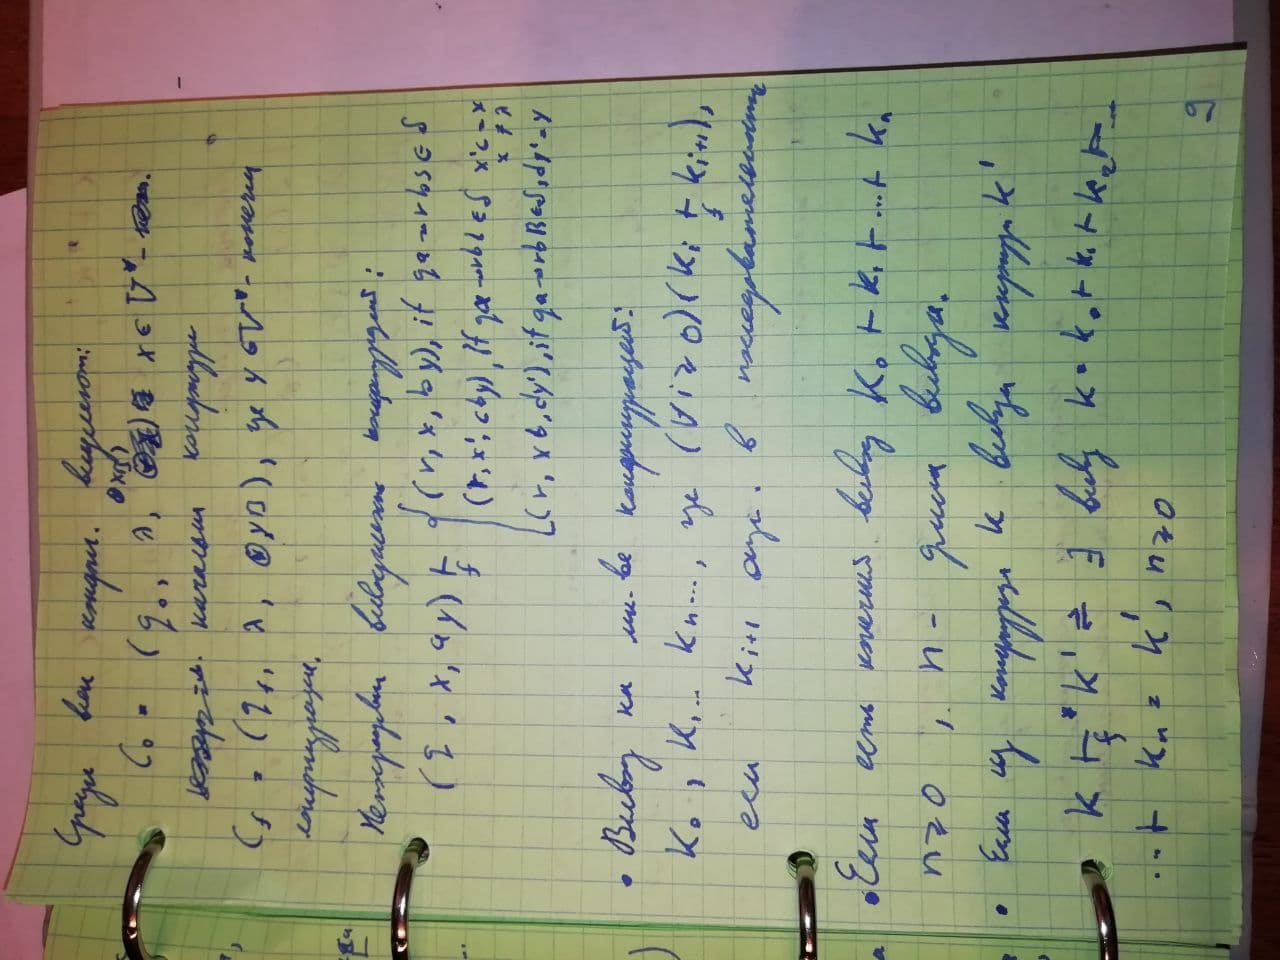 Среди всех конфиг. выделяют:
C₀ = (q₀, λ, ⊛xB), x ∈ V* -
начальная конфигурация
C_f = (q_f, λ, ⊛yB), где y ∈ V* - конечная
конфигурация.
Непосредствен выводимость конфигураций:
(q, x, ay) ⊢_f { (r, x, by), if qa → rbS ∈ δ
(r, x', cby), if qa → rbL ∈ δ x'c = x
x ≠ λ
(r, xb, dy'), if qa → rbR ∈ δ, dy' = y
• Вывод на мн-ве конфигураций:
K₀, K₁... Kₙ..., где (∀i ≥ 0)(Kᵢ ⊢_f Kᵢ₊₁),
если Kᵢ₊₁ сущ. в последовательности
• Если есть конечный вывод K₀ ⊢ K₁ ⊢ ... ⊢ Kₙ
n ≥ 0, n - длина вывода.
• Если из конфигурац K вывод конфигурац K'
K ⊢_f* K' ⇌ ∃ вывод K = K₀ ⊢ K₁ ⊢ K₂ ⊢ ...
... ⊢ Kₙ = K', n ≥ 0
9